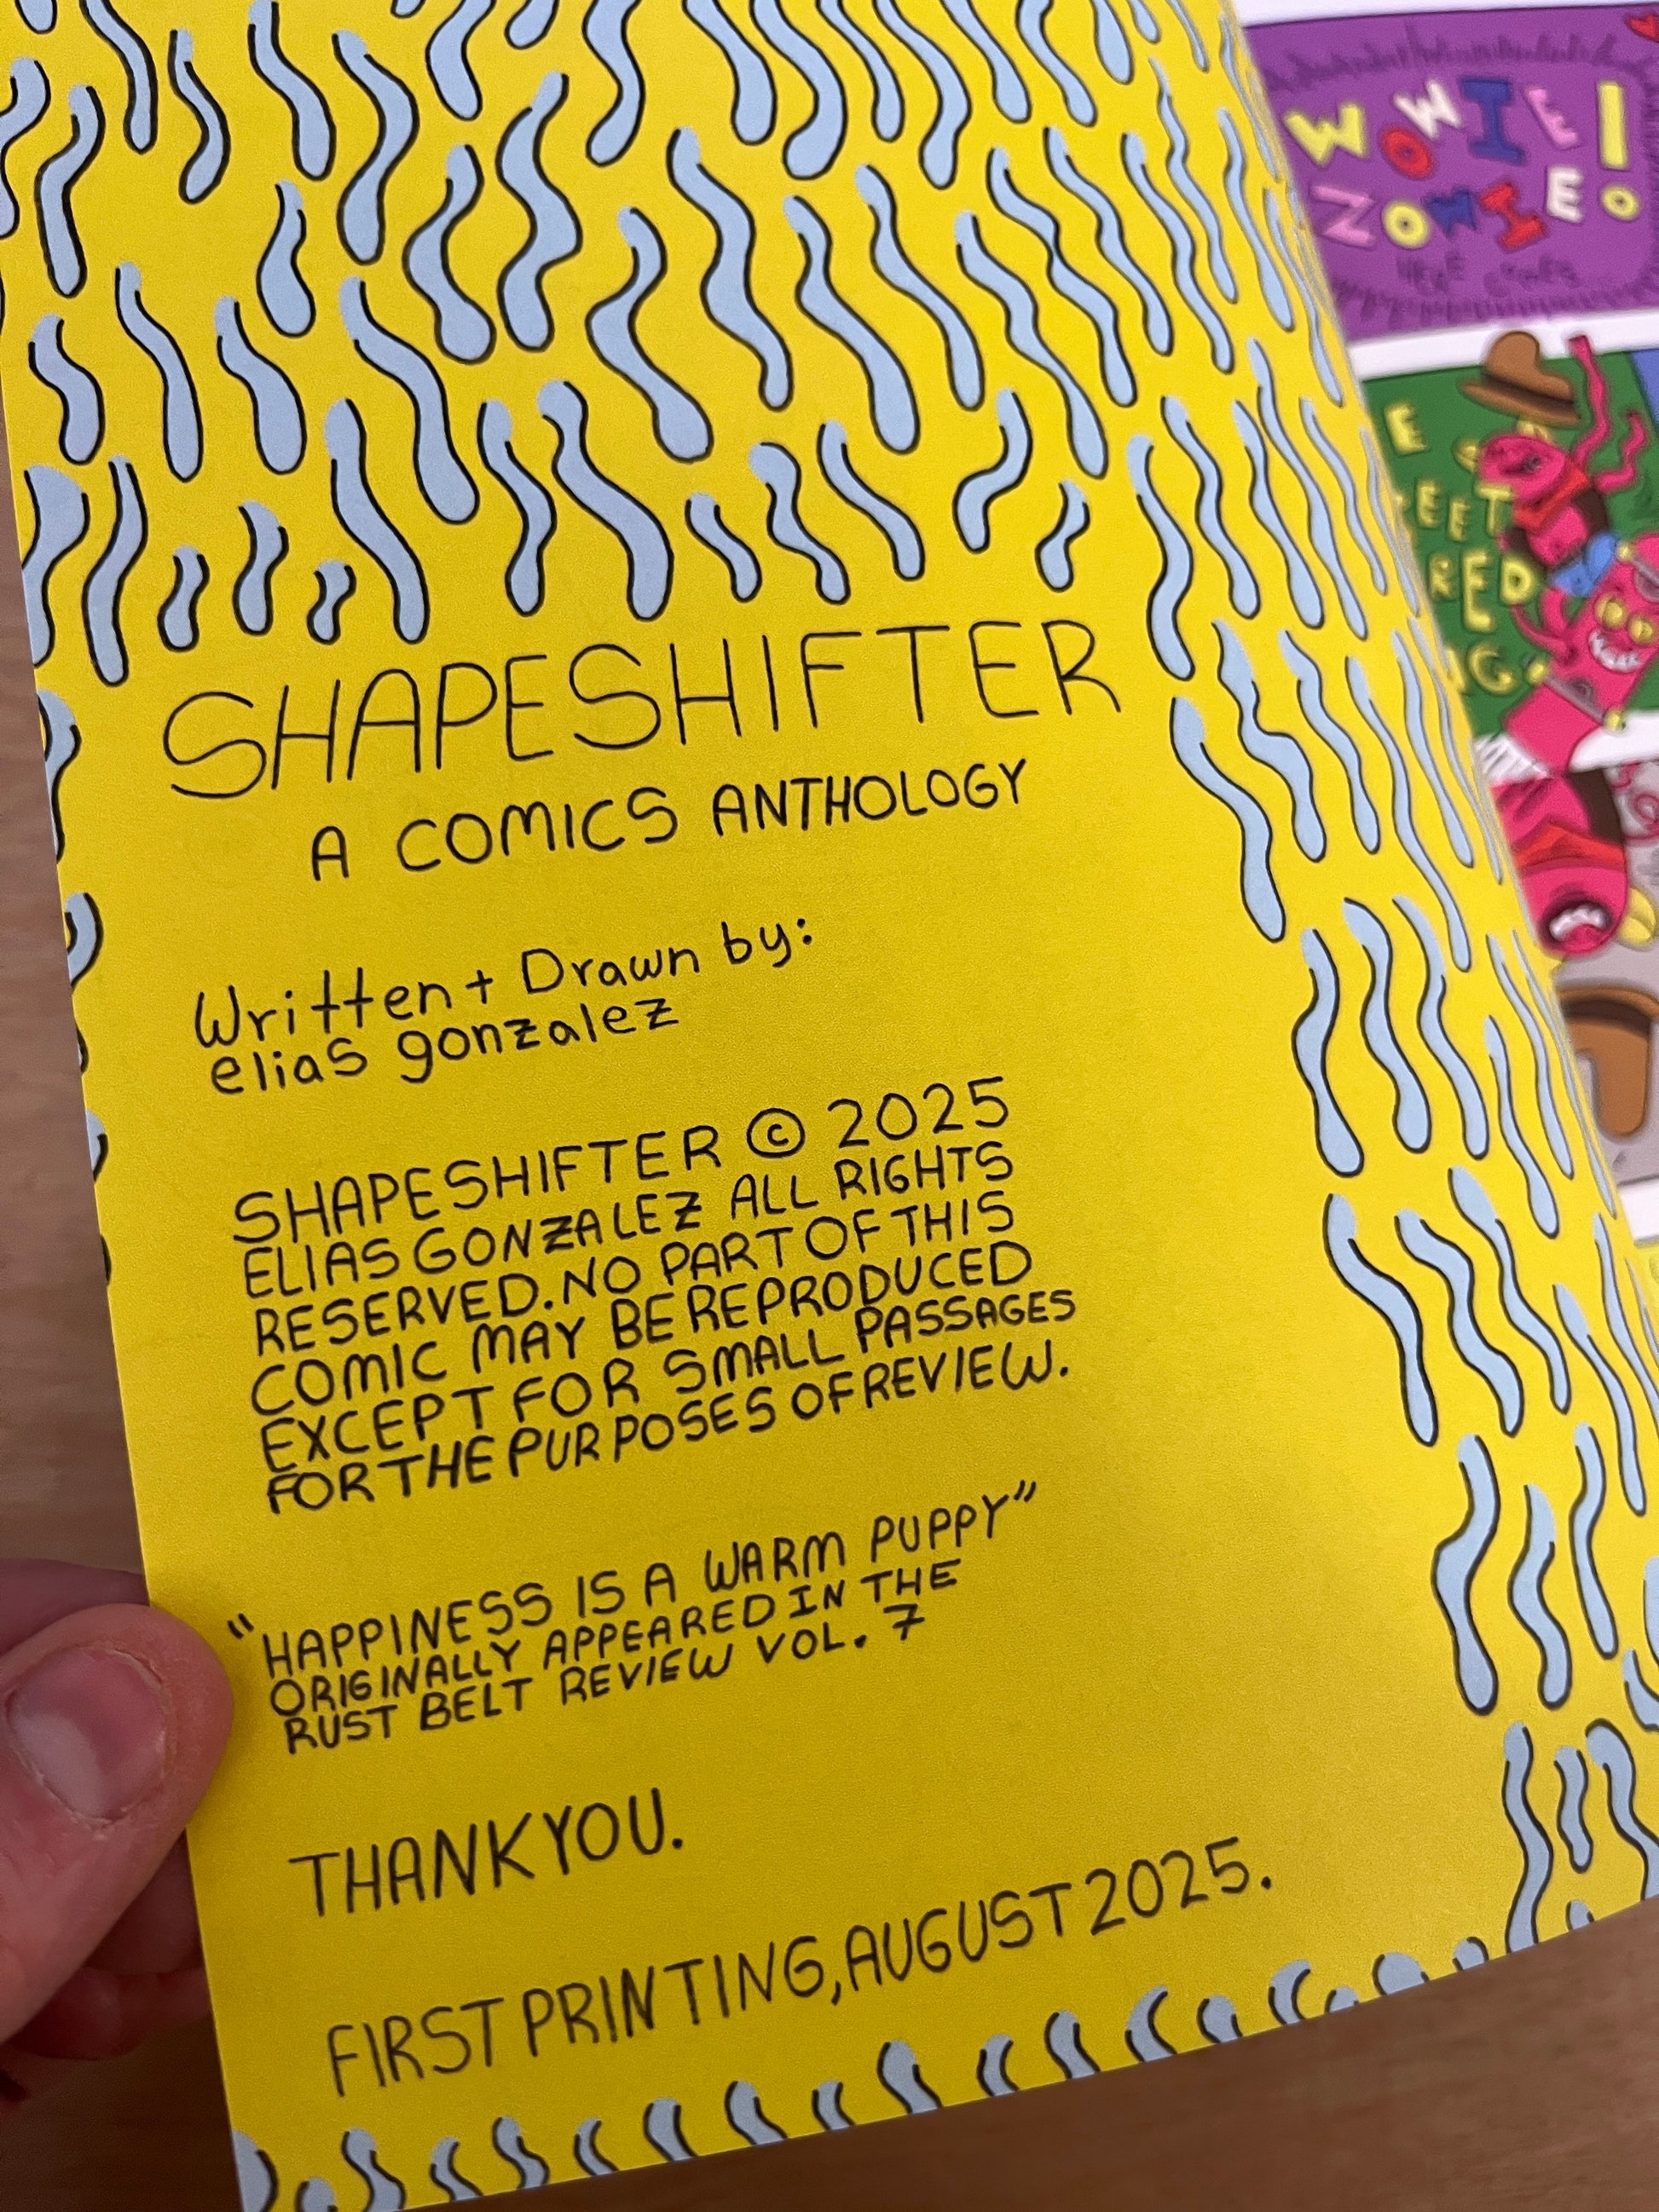 SHAPESHIFTER
A COMICS ANTHOLOGY
Written + Drawn by:
elias gonzalez
SHAPESHIFTER © 2025
ELIAS GONZALEZ ALL RIGHTS
RESERVED. NO PART OF THIS
COMIC MAY BE REPRODUCED
EXCEPT FOR SMALL PASSAGES
FOR THE PURPOSES OF REVIEW.
"HAPPINESS IS A WARM PUPPY"
ORIGINALLY APPEARED IN THE
RUST BELT REVIEW VOL. 7
THANK YOU.
FIRST PRINTING, AUGUST 2025.
WOWIE
ZOWIE!
HERE COMES